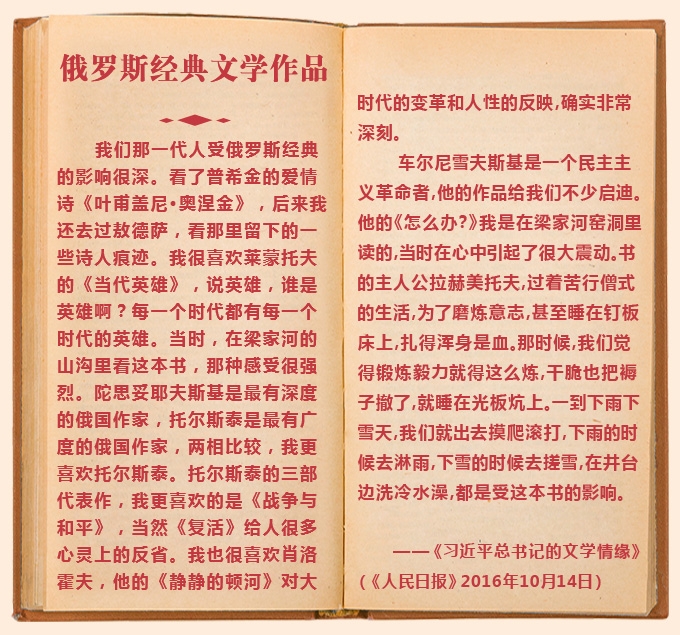 俄罗斯经典文学作品
我们那一代人受俄罗斯经典
的影响很深。看了普希金的爱情
诗《叶甫盖尼·奥涅金》，后来我
还去过敖德萨，看那里留下的一
些诗人痕迹。我很喜欢莱蒙托夫
的《当代英雄》，说英雄，谁是
英雄啊？每一个时代都有每一个
时代的英雄。当时，在梁家河的
山沟里看这本书，那种感受很强
烈。陀思妥耶夫斯基是最有深度
的俄国作家，托尔斯泰是最有广
度的俄国作家，两相比较，我更
喜欢托尔斯泰。托尔斯泰的三部
代表作，我更喜欢的是《战争与
和平》，当然《复活》给人很多
心灵上的反省。我也很喜欢肖洛
霍夫，他的《静静的顿河》对大
时代的变革和人性的反映,确实非常
深刻。
车尔尼雪夫斯基是一个民主主
义革命者,他的作品给我们不少启迪。
他的《怎么办?》我是在梁家河窑洞里
读的,当时在心中引起了很大震动。书
的主人公拉赫美托夫,过着苦行僧式
的生活,为了磨炼意志,甚至睡在钉板
床上,扎得浑身是血。那时候,我们觉
得锻炼毅力就得这么炼,干脆也把褥
子撤了,就睡在光板炕上。一到下雨下
雪天,我们就出去摸爬滚打,下雨的时
候去淋雨,下雪的时候去搓雪,在井台
边洗冷水澡,都是受这本书的影响。
——《习近平总书记的文学情缘》
(《人民日报》2016年10月14日)